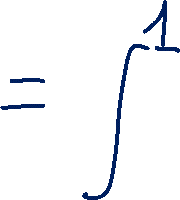 = ∫^1